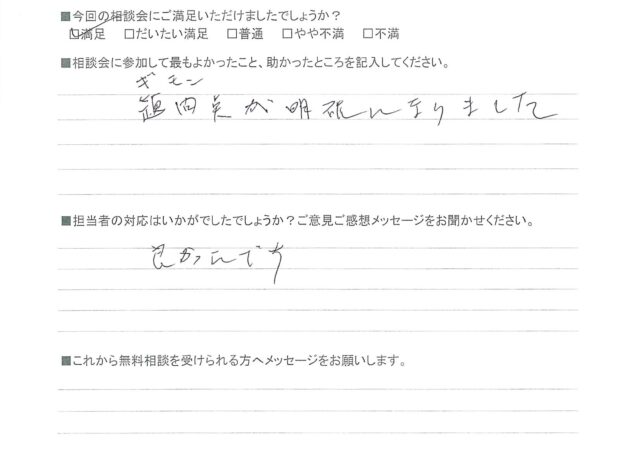 ■今回の相談会にご満足いただけましたでしょうか？
☑満足 □だいたい満足 □普通 □やや不満 □不満
■相談会に参加して最もよかったこと、助かったところを記入してください。
ギモン
題向点が明確になりました
■担当者の対応はいかがでしたでしょうか？ご意見ご感想メッセージをお聞かせください。
良かったです
■これから無料相談を受けられる方へメッセージをお願いします。